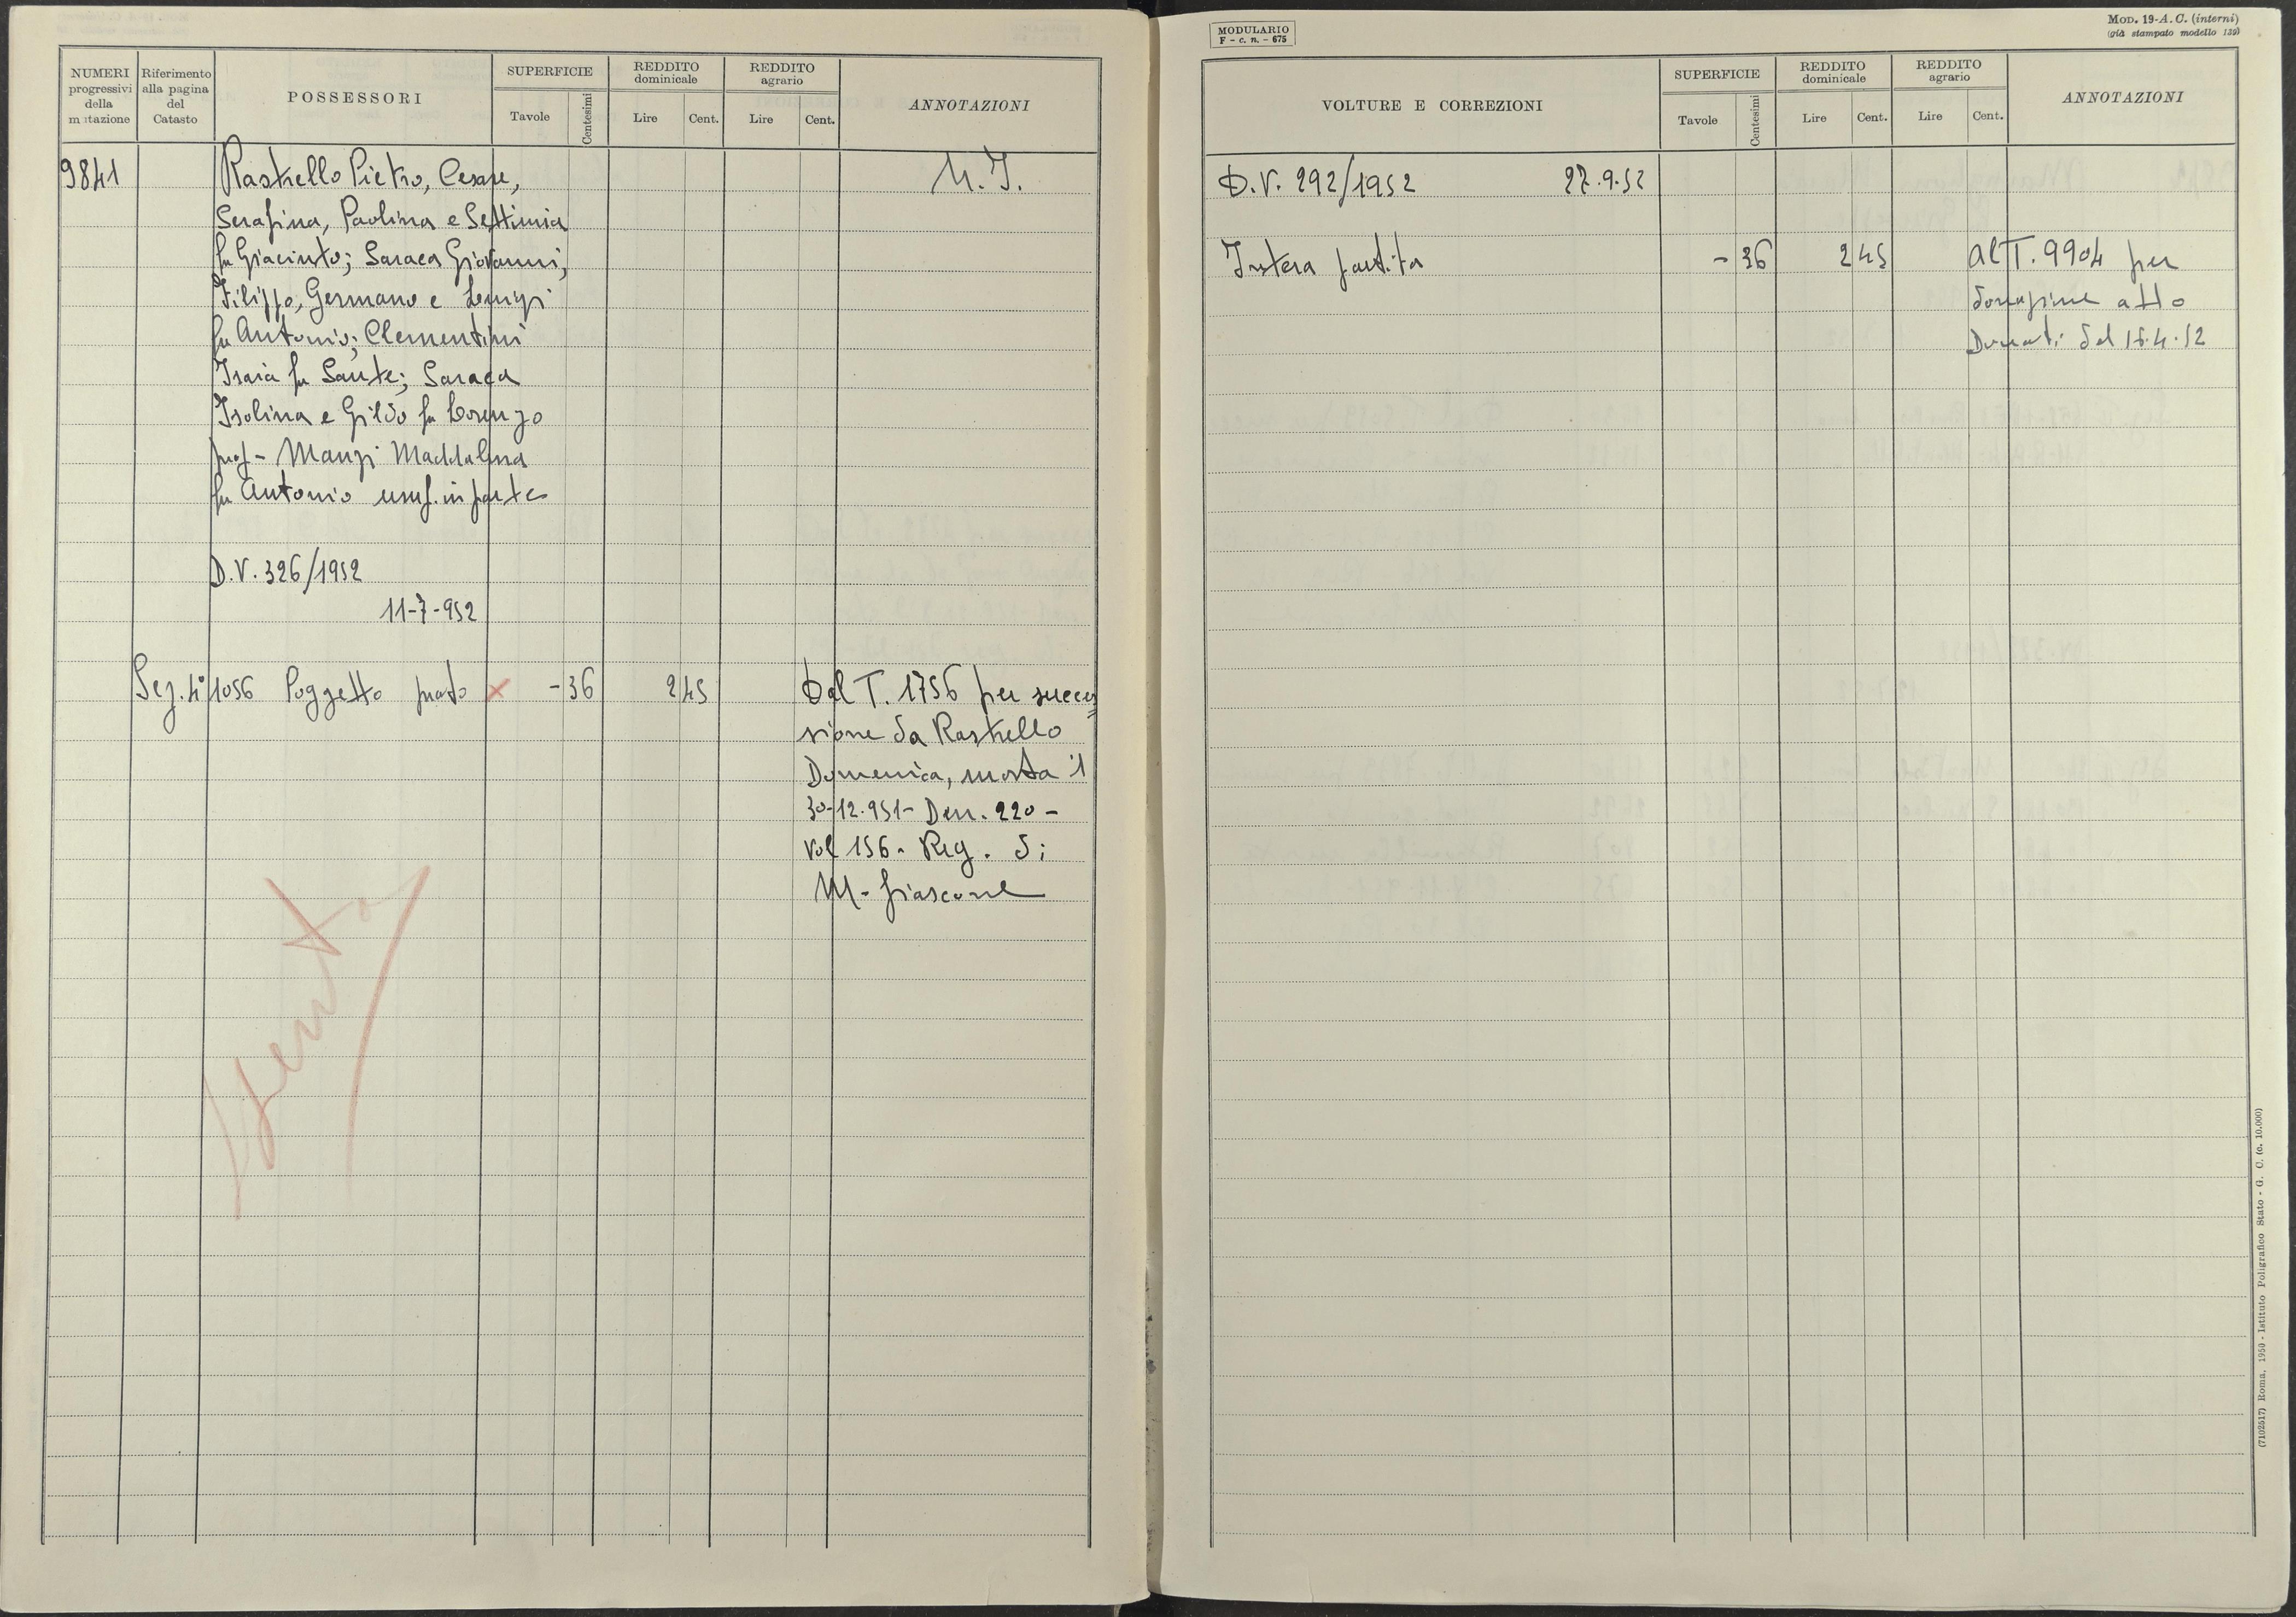 NUMERI progressivi della m tazione
Riferimento alla pagina del Catasto
POSSESSORI
SUPERFICIE
Tavole
Centesimi
REDDITO dominicale
Lire
Cent.
REDDITO agrario
Lire
Cent.
ANNOTAZIONI
9841
Rastrello Pietro, Cesare,
Serafina, Paolina e Settimia
fu Giacinto; Saraca Giovanni,
Filippo, Germano e Luigi
fu Antonio; Clementini
Isaia fu Sante; Saraca
Isolina e Gildo fu Lorenzo
prop- Manzi Maddalena
fu Antonio usuf. in parte
D.V. 326/1952
11-7-952
Sez. 4ª 1056 Poggetto prato x - 36 2 45
Dal T. 1756 per succes
sione da Rastrello
Domenica, morta il
30-12-951- Den. 220-
Vol 156- Reg. di
M- fiascone
Spenta
MODULARIO
F - c. n. - 675
MOD. 19-A. C. (interni)
(già stampato modello 139)
VOLTURE E CORREZIONI
SUPERFICIE
Tavole
Centesimi
REDDITO dominicale
Lire
Cent.
REDDITO agrario
Lire
Cent.
ANNOTAZIONI
D.V. 292/1952 27.9.52
Intera partita - 36 2 45
Al T. 9904 per
donazione atto
Donati del 16.4.52
(7102517) Roma, 1950 - Istituto Poligrafico Stato - G. C. (c. 10.000)